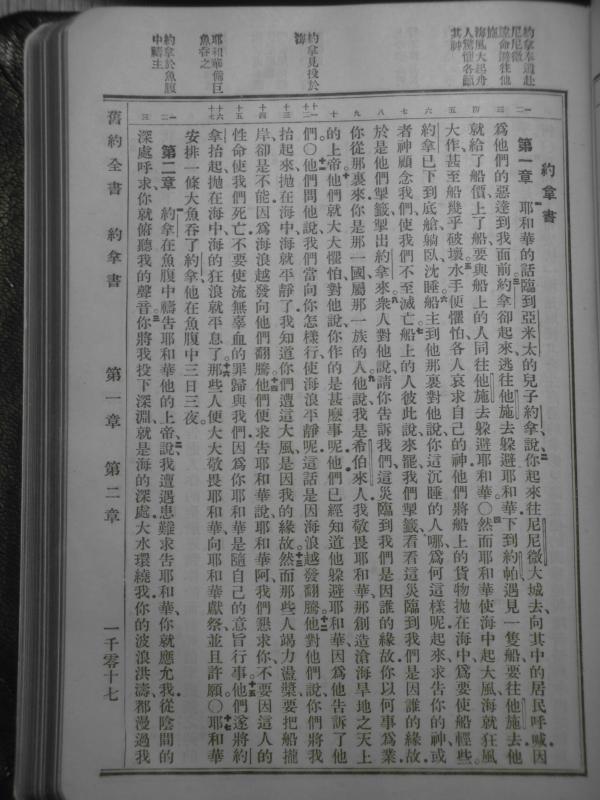 約拿奉遣赴
尼尼微
違命潛往他
施
海風大起舟
人驚懼各籲
其神
約拿見投於
海
耶和華備巨
魚吞之
約拿於魚腹
中禱主
約拿書
第一章 耶和華的話臨到亞米太的兒子約拿說、你起來往尼尼微大城去、向其中的居民呼喊、因
為他們的惡達到我面前。約拿卻起來、逃往他施去躲避耶和華、下到約帕、遇見一隻船、要往他施去、他
就給了船價、上了船、要與船上的人同往他施去躲避耶和華。○然而耶和華使海中起大風、海就狂風
大作、甚至船幾乎破壞。水手便懼怕、各人哀求自己的神、他們將船上的貨物拋在海中、為要使船輕些。
約拿已下到底艙、躺臥沈睡。船主到他那裏對他說、你這沉睡的人哪、為何這樣呢、起來求告你的神、或
者神顧念我們、使我們不至滅亡。船上的人彼此說、來罷、我們掣籤、看看這災臨到我們是因誰的緣故、
於是他們掣籤、掣出約拿來。眾人對他說、請你告訴我們、這災臨到我們是因誰的緣故、你以何事為業、
你從那裏來、你是那一國、屬那一族的人。他說、我是希伯來人、我敬畏耶和華、那創造滄海旱地之天上
的上帝。他們就大大懼怕、對他說、你作的是甚麼事呢、他們已經知道他躲避耶和華、因為他告訴了他
們。○他們問他說、我們當向你怎樣行、使海浪平靜呢、這話是因海浪越發翻騰。他對他們說、你們將我
抬起來、拋在海中、海就平靜了、我知道你們遭這大風、是因我的緣故。然而那些人竭力盪槳、要把船攏
岸、卻是不能、因為海浪越發向他們翻騰。他們便求告耶和華說、耶和華阿、我們懇求你、不要因這人的
性命使我們死亡、不要使流無辜血的罪歸與我們、因為你耶和華是隨自己的意旨行事。他們遂將約
拿抬起、拋在海中、海的狂浪就平息了。那些人便大大敬畏耶和華、向耶和華獻祭、並且許願。○耶和華
安排一條大魚吞了約拿、他在魚腹中三日三夜。
第二章 約拿在魚腹中禱告耶和華他的上帝、說、我遭遇患難求告耶和華、你就應允我、從陰間的
深處呼求、你就俯聽我的聲音。你將我投下深淵、就是海的深處、大水環繞我、你的波浪洪濤、都漫過我
舊約全書 約拿書 第一章 第二章 一千零十七